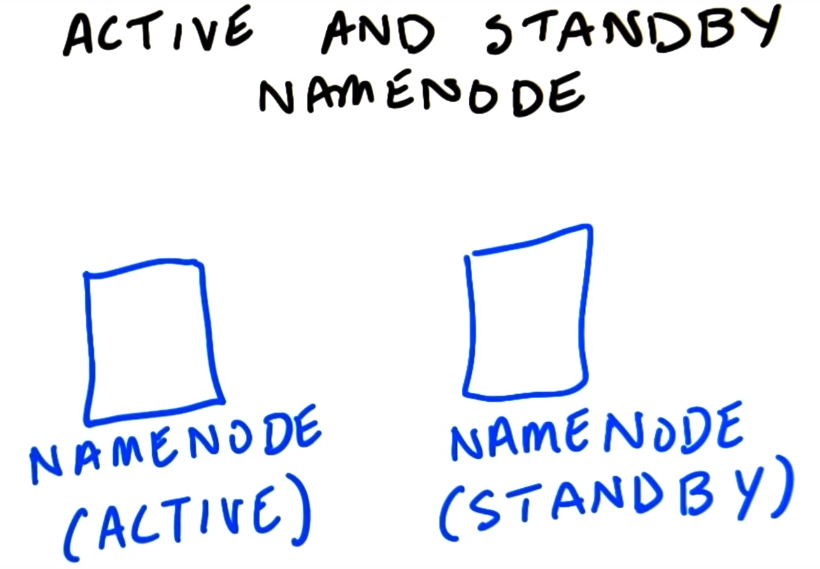 ACTIVE AND STANDBY
NAMENODE
NAMENODE
(ACTIVE)
NAMENODE
(STANDBY)